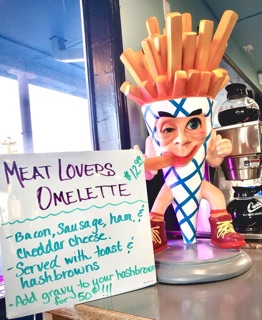 MEAT LOVERS
OMELETTE
$12.99
- Bacon, Sausage, ham, &
cheddar cheese.
- Served with toast &
hashbrowns
- Add gravy to your hashbrowns
for 50¢!!!